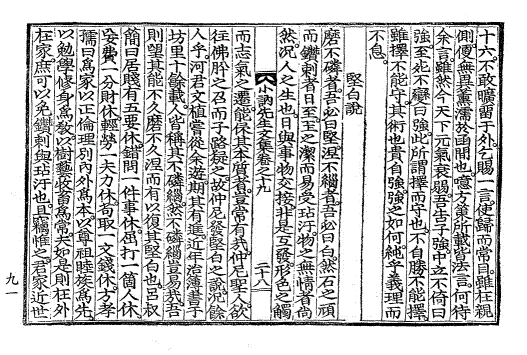 十六不敢曠留于外乞賜一言使歸而常目雖枉親
側便無異薰濡於函間也噫方策所載皆法言何待
余言雖然今天下元氣衰弱吾告子強中立不倚曰
強至死不變曰強此所謂擇而守也不自勝不能擇
雖擇不能守其術也貴自強強之如何純乎義理而
不息
堅白說
磨不磷者吾必曰堅涅不緇者吾必曰白然石之頑
而鑽刺者日至玉之潔而易受玷汙物之無情者尚
然況人之生也日與事物交接非是互發形色之觸
小訥先生文集卷之九
二十八
而志氣之遷能保其本質者豈常有哉仲尼聖人欲
往佛肸之召而子路疑之故仲尼發堅白之說況餘
人乎河君文植嘗從余遊期其有進近年治簿書子
坊里十餘載皆稱其不磷緇然不磷緇豈易哉吾
則望其能不久磨不久涅而有以復其堅白也呂叔
簡曰居賤有五要休錯問一件事休屈打一箇人休
妄費一分財休輕勞一夫力休苟取一文錢休方孝
孺曰爲家以正倫理別內外爲本以尊祖睦族爲先
以勉學修身爲敎以樹藝收畜爲常夫如是則在外
在家庶可以免鑽刺與玷汙也且竊惟之君家近世
九一